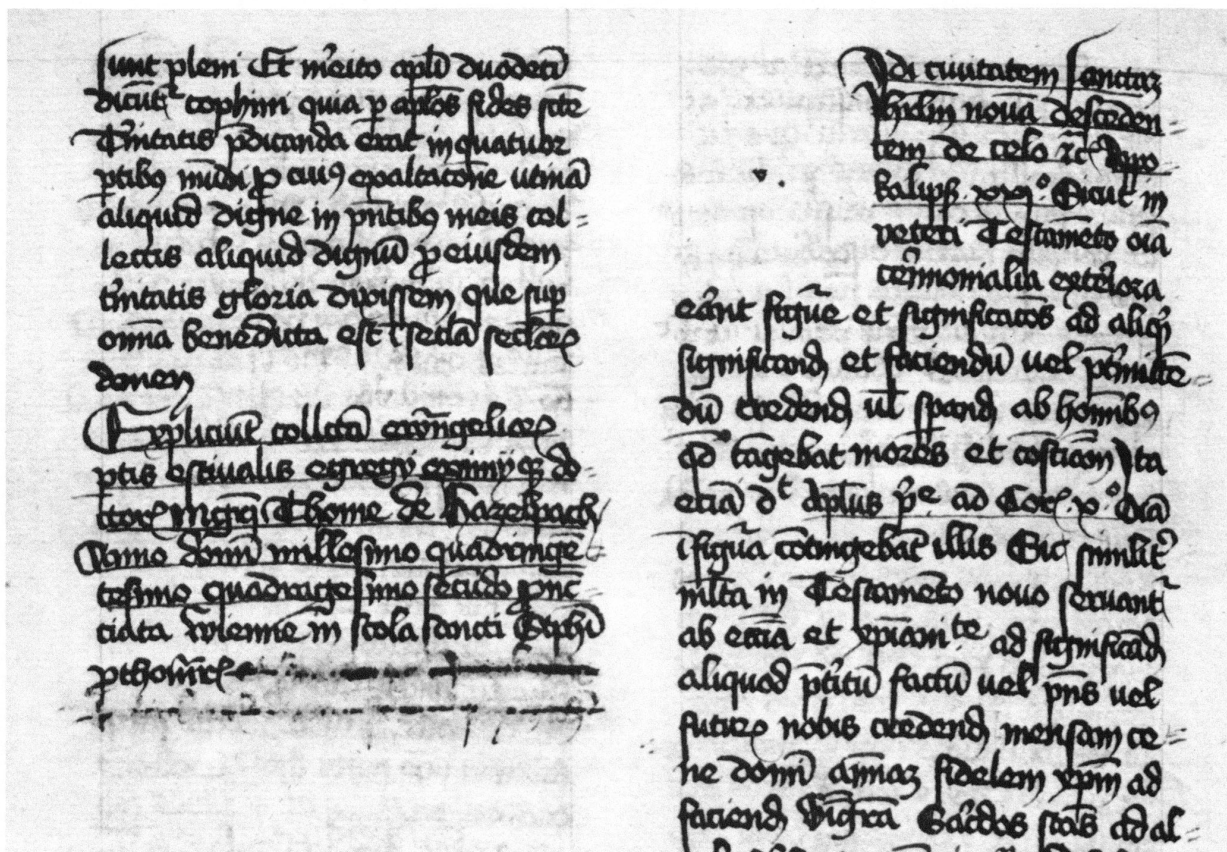 sunt pleni Et m̃ito apl̃i duodeci
dicũt᷑ cophini quia ꝑ apl̃os fides scẽ
Trinitatis p̃dicanda erat in quatuor
ꝑtibꝯ mũdi ꝓ cuiꝯ exaltatõne utinã
aliquid digne in pñtibꝯ meis col=
lectis aliquid dignũ ꝓ eiusdem
tñitatis gloria dixissem que suꝑ
om̃ia benedicta est ĩ sec̃la sec̃loꝝ
Amen
Expliciũt collecta ewãngelioꝝ
ꝑtis estiualis egregij eximijqꝫ do=
ctoꝝ mgr̃i Thome de Hazelpach
Anno domĩ millesimo quadringẽ
tesimo quadragesimo secũdo ꝓnũc
ciata wienne in scola sancti Stephi
prothom̃ris
Vidi ciuitatem sanctaꝫ
Jhrlm̃ nouã desceden=
tem de celo ⁊c̃ Apo
kalips̃ xxj° Sicut in
veteri Testamẽto oĩa
cerimonialia exteriora
erãnt figure et significatões ad aliqͥd
significandũ et faciendũ uel ꝑmitten
dũ credendũ ul̃ sperandũ ab hominibꝯ
qd̃ tãgebat mores et Ita
eciã dt̃ Aplus pͥe ad Coꝝ x° Oĩa
ĩ figura cõtingebãt illis Sic similit᷑
ml̃ta in Testamẽto nouo seruant᷑
ab eccĩa et xp̃iani te ad significãdũ
aliquod p̃titũ factũ uel pñs uel
futuꝝ nobis credendũ mensam ce=
ne domĩ animaꝫ fidelem xp̃m ad
faciendũ Sac̃dos stãs ad al=